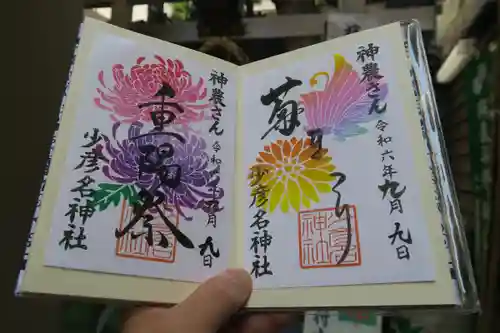 神農さん
令和六年九月九日
菊まつり
少彦名神社
神社
神農さん
令和六年九月九日
重陽祭
少彦名神社